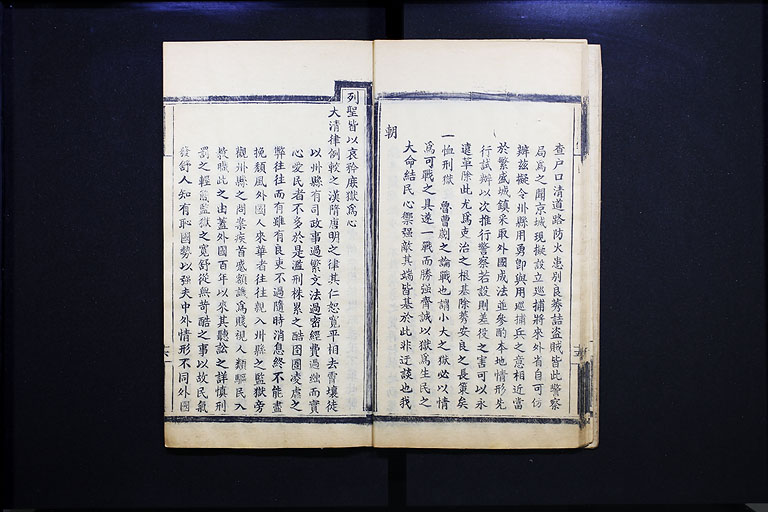 查戶口清道路防火患别良莠詰盗賊皆此警察
局爲之聞京城現擬設立巡捕將來外省自可仿
辦兹擬令州縣用勇卽與用巡捕兵之意相近當
於繁盛城鎮采取外國成法並參酌本地情形先
行試辦以次推行警察若設則差役之害可以永
遠革除此尤爲吏治之根基除莠安良之長策矣
一恤刑獄 魯曹劌之論戰也謂小大之獄必以情
爲可戰之具遂一戰而勝强齊誠以獄爲生民之
大命結民心禦强敵其端皆基於此非迂談也我
朝
列聖皆以哀矜庶獄爲心
大清律例較之漢隋唐明之律其仁恕寬平相去霄壤徒
以州縣有司政事過繁文法過密經費過絀而實
心愛民者不多於是濫刑株累之酷囹圄凌虐之
弊往往而有雖有良吏不過隨時消息終不能盡
挽頽風外國人來華者往往親入州縣之監獄旁
觀州縣之問案疾首蹙額譏爲賤視人類驅民入
教職此之由蓋外國百年以來其聽訟之詳慎刑
罰之輕監獄之寬舒從無苛酷之事以故民氣
發舒人知有恥國勢以强夫中外情形不同外國